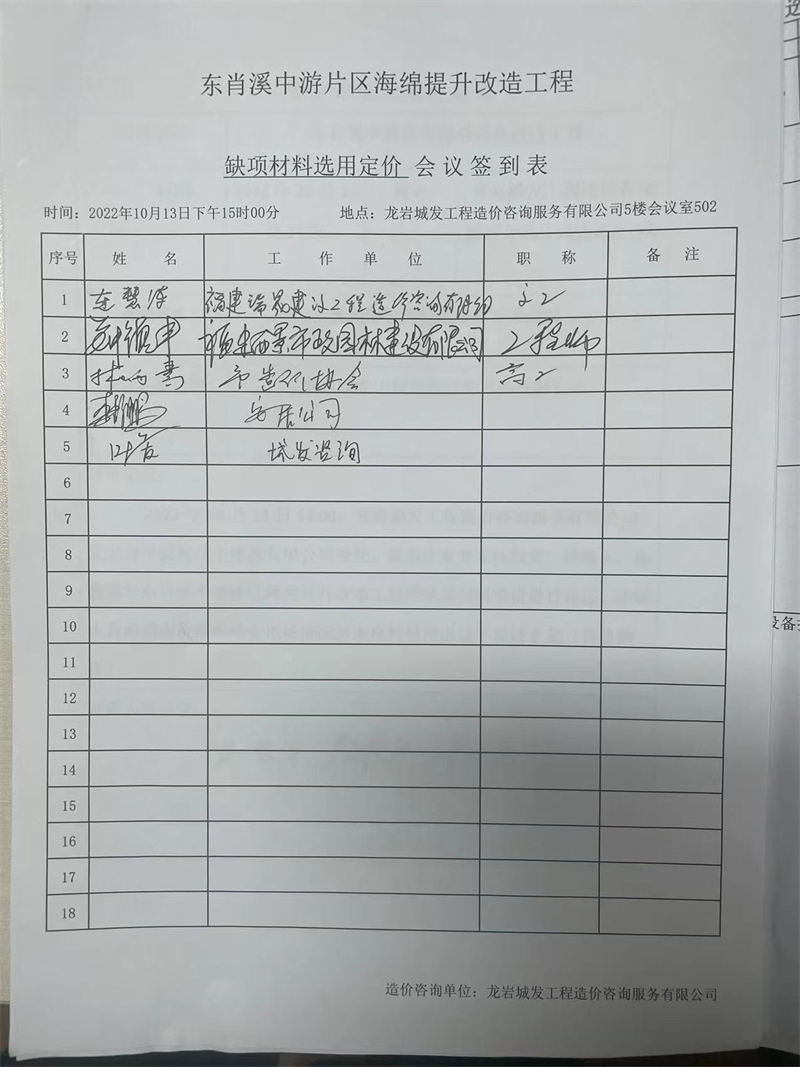 东肖溪中游片区海绵提升改造工程
缺项材料选用定价 会议签到表
时间：2022年10月13日下午15时00分 地点：龙岩城发工程造价咨询服务有限公司5楼会议室502
序号 姓名 工作单位 职称 备注
1 福建 建设工程造价咨询有限公司
2 福建 景市政园林建设有限公司 工程师
3 市造价协会 高工
4 安居公司
5 叶 城发咨询
6
7
8
9
10
11
12
13
14
15
16
17
18
造价咨询单位：龙岩城发工程造价咨询服务有限公司
选
设备